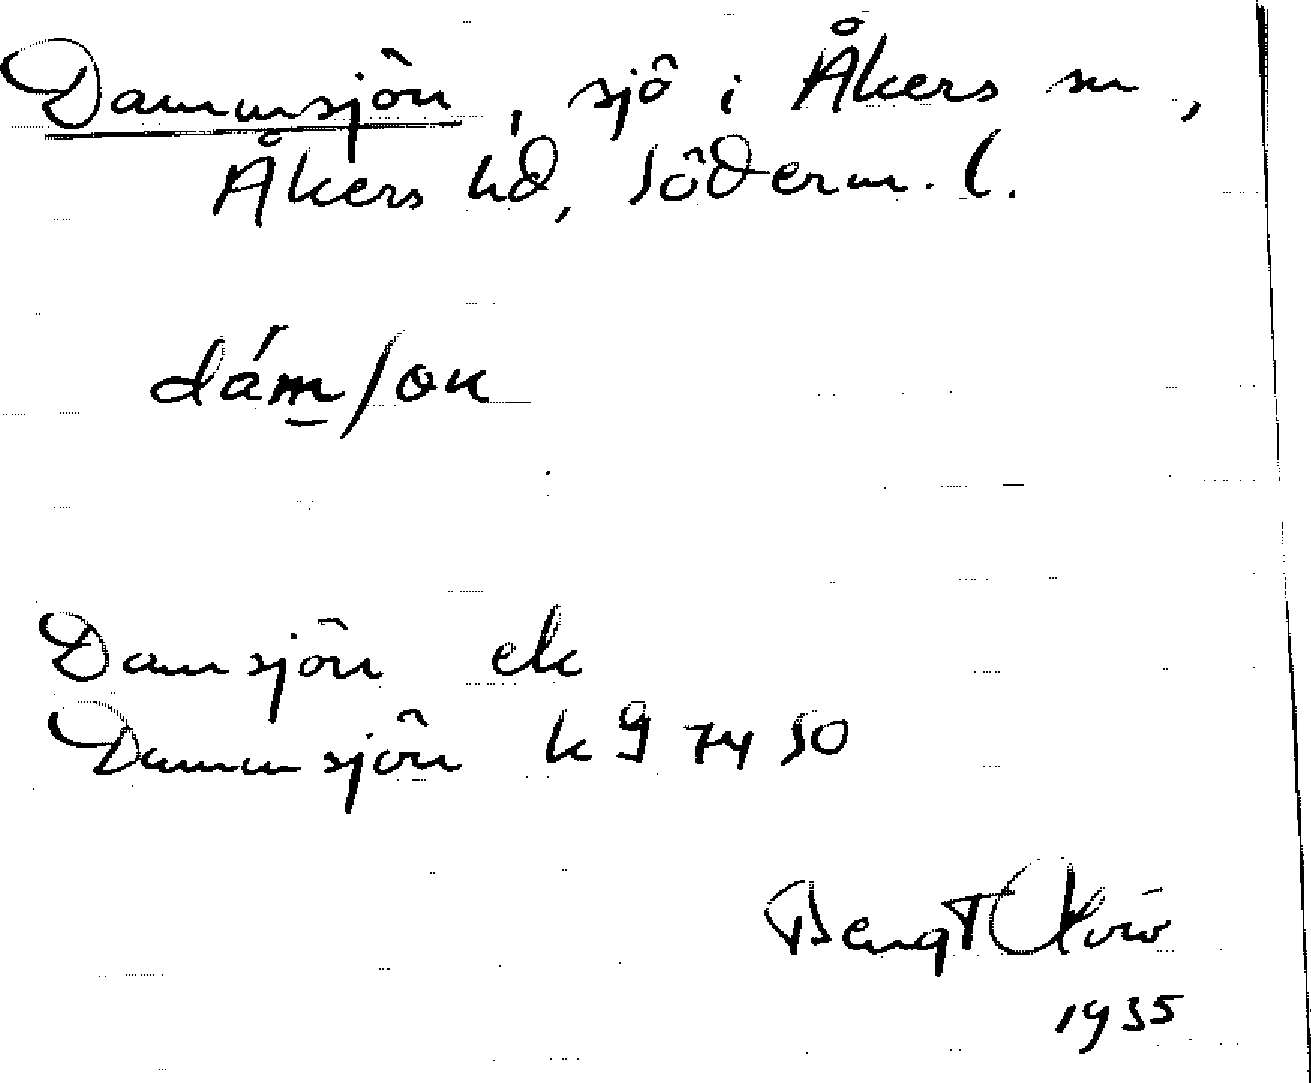 Dammsjön, sjö i Åkers sn,
Åkers hd, Söderm. l.
dám/ơn
Damsjön ek
Dammsjön k 9 74 SO
Bengt
1935